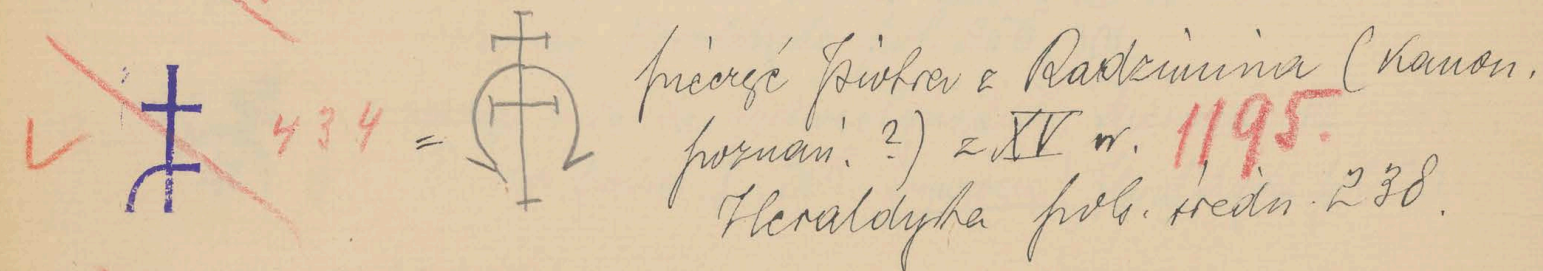 434 = pieczęć Piotra z Radzimina (Kanon.
poznań. ?) z XV w. 1195.
Heraldyka pols. średn. 238.